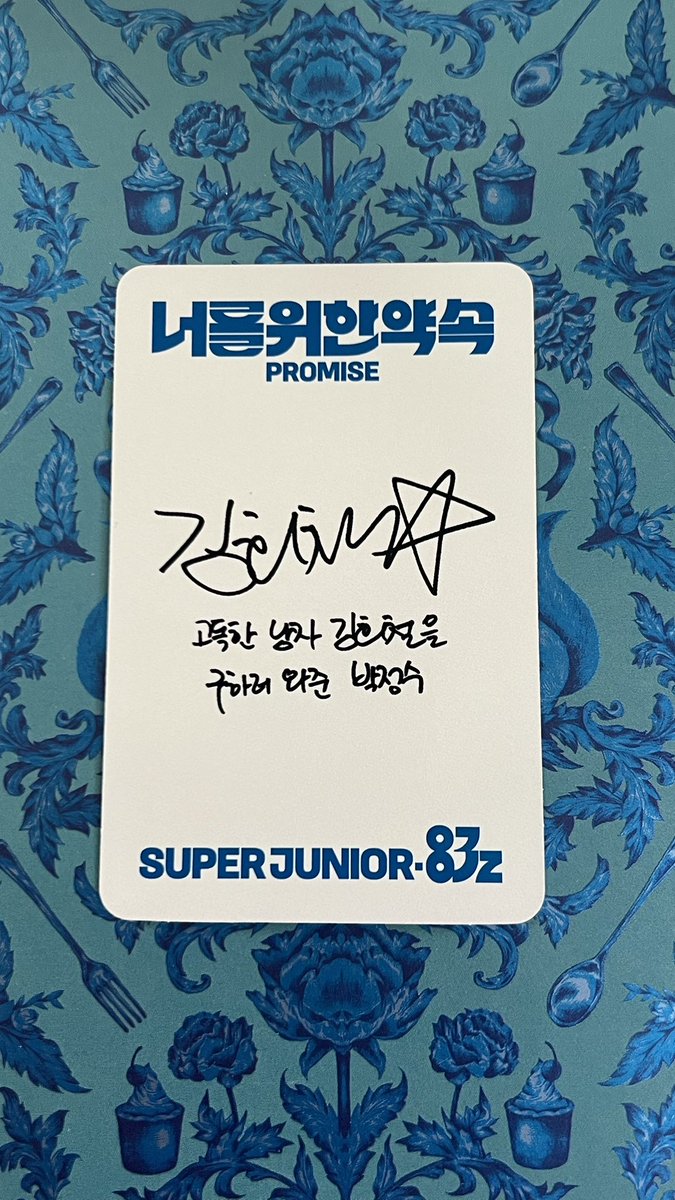 너를위한약속
PROMISE
김희철☆
고독한 남자 김희철을
구하러 와준 박정수
SUPER JUNIOR-83z